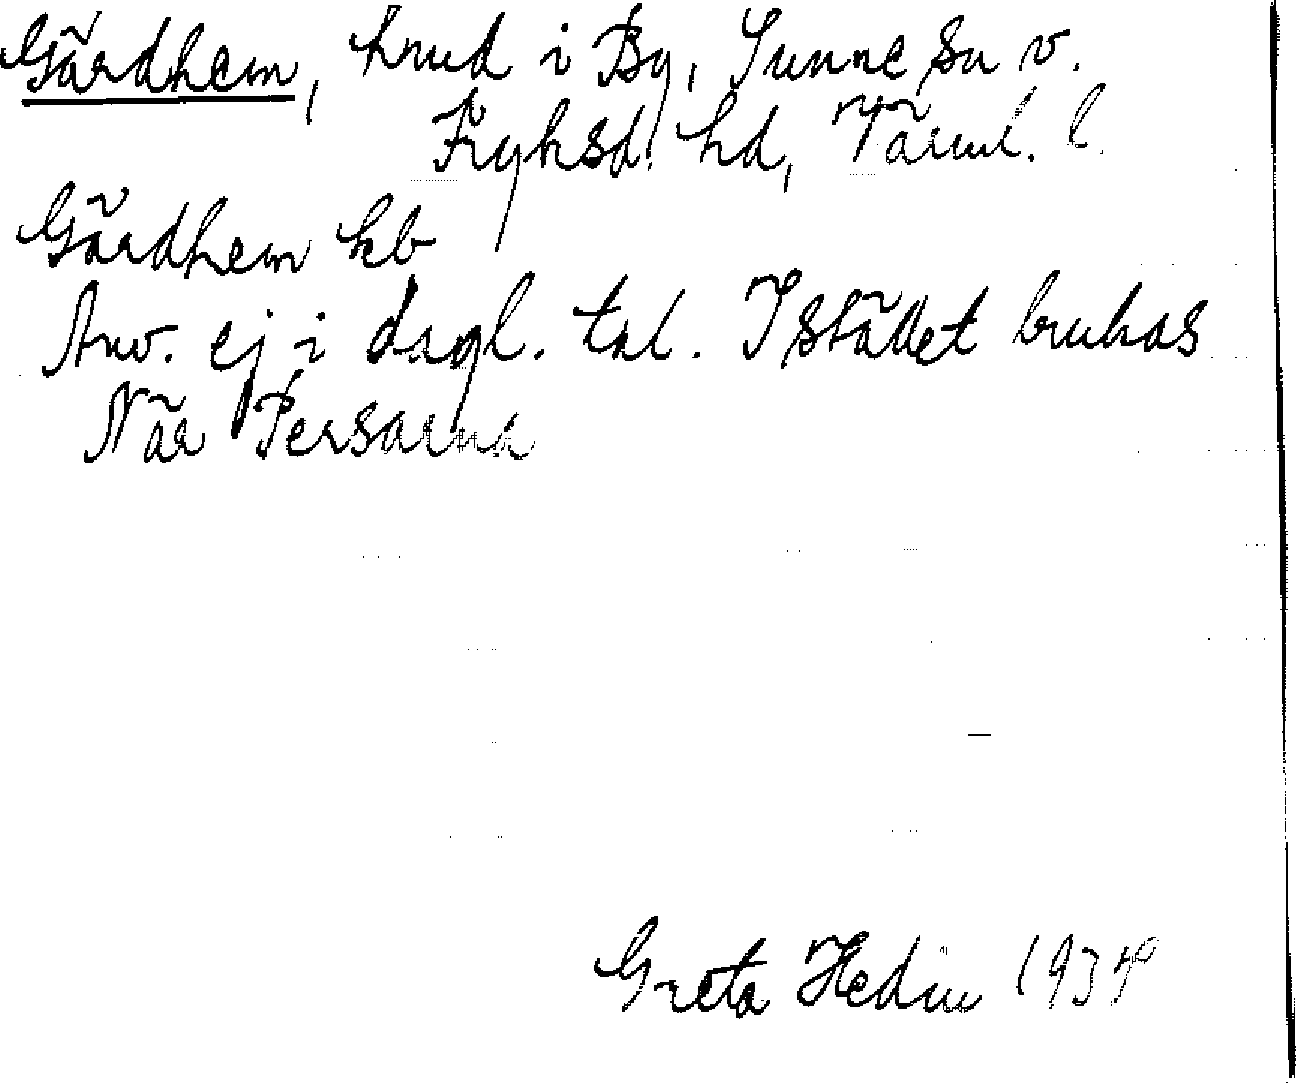 Gärdhem, hmd i By, Sunne sn v.
Fryksd. hd, Värml. l.
Gärdhem kb
Anv. ej i dagl. tal. I stället brukas
När Persarna
Greta Hedin